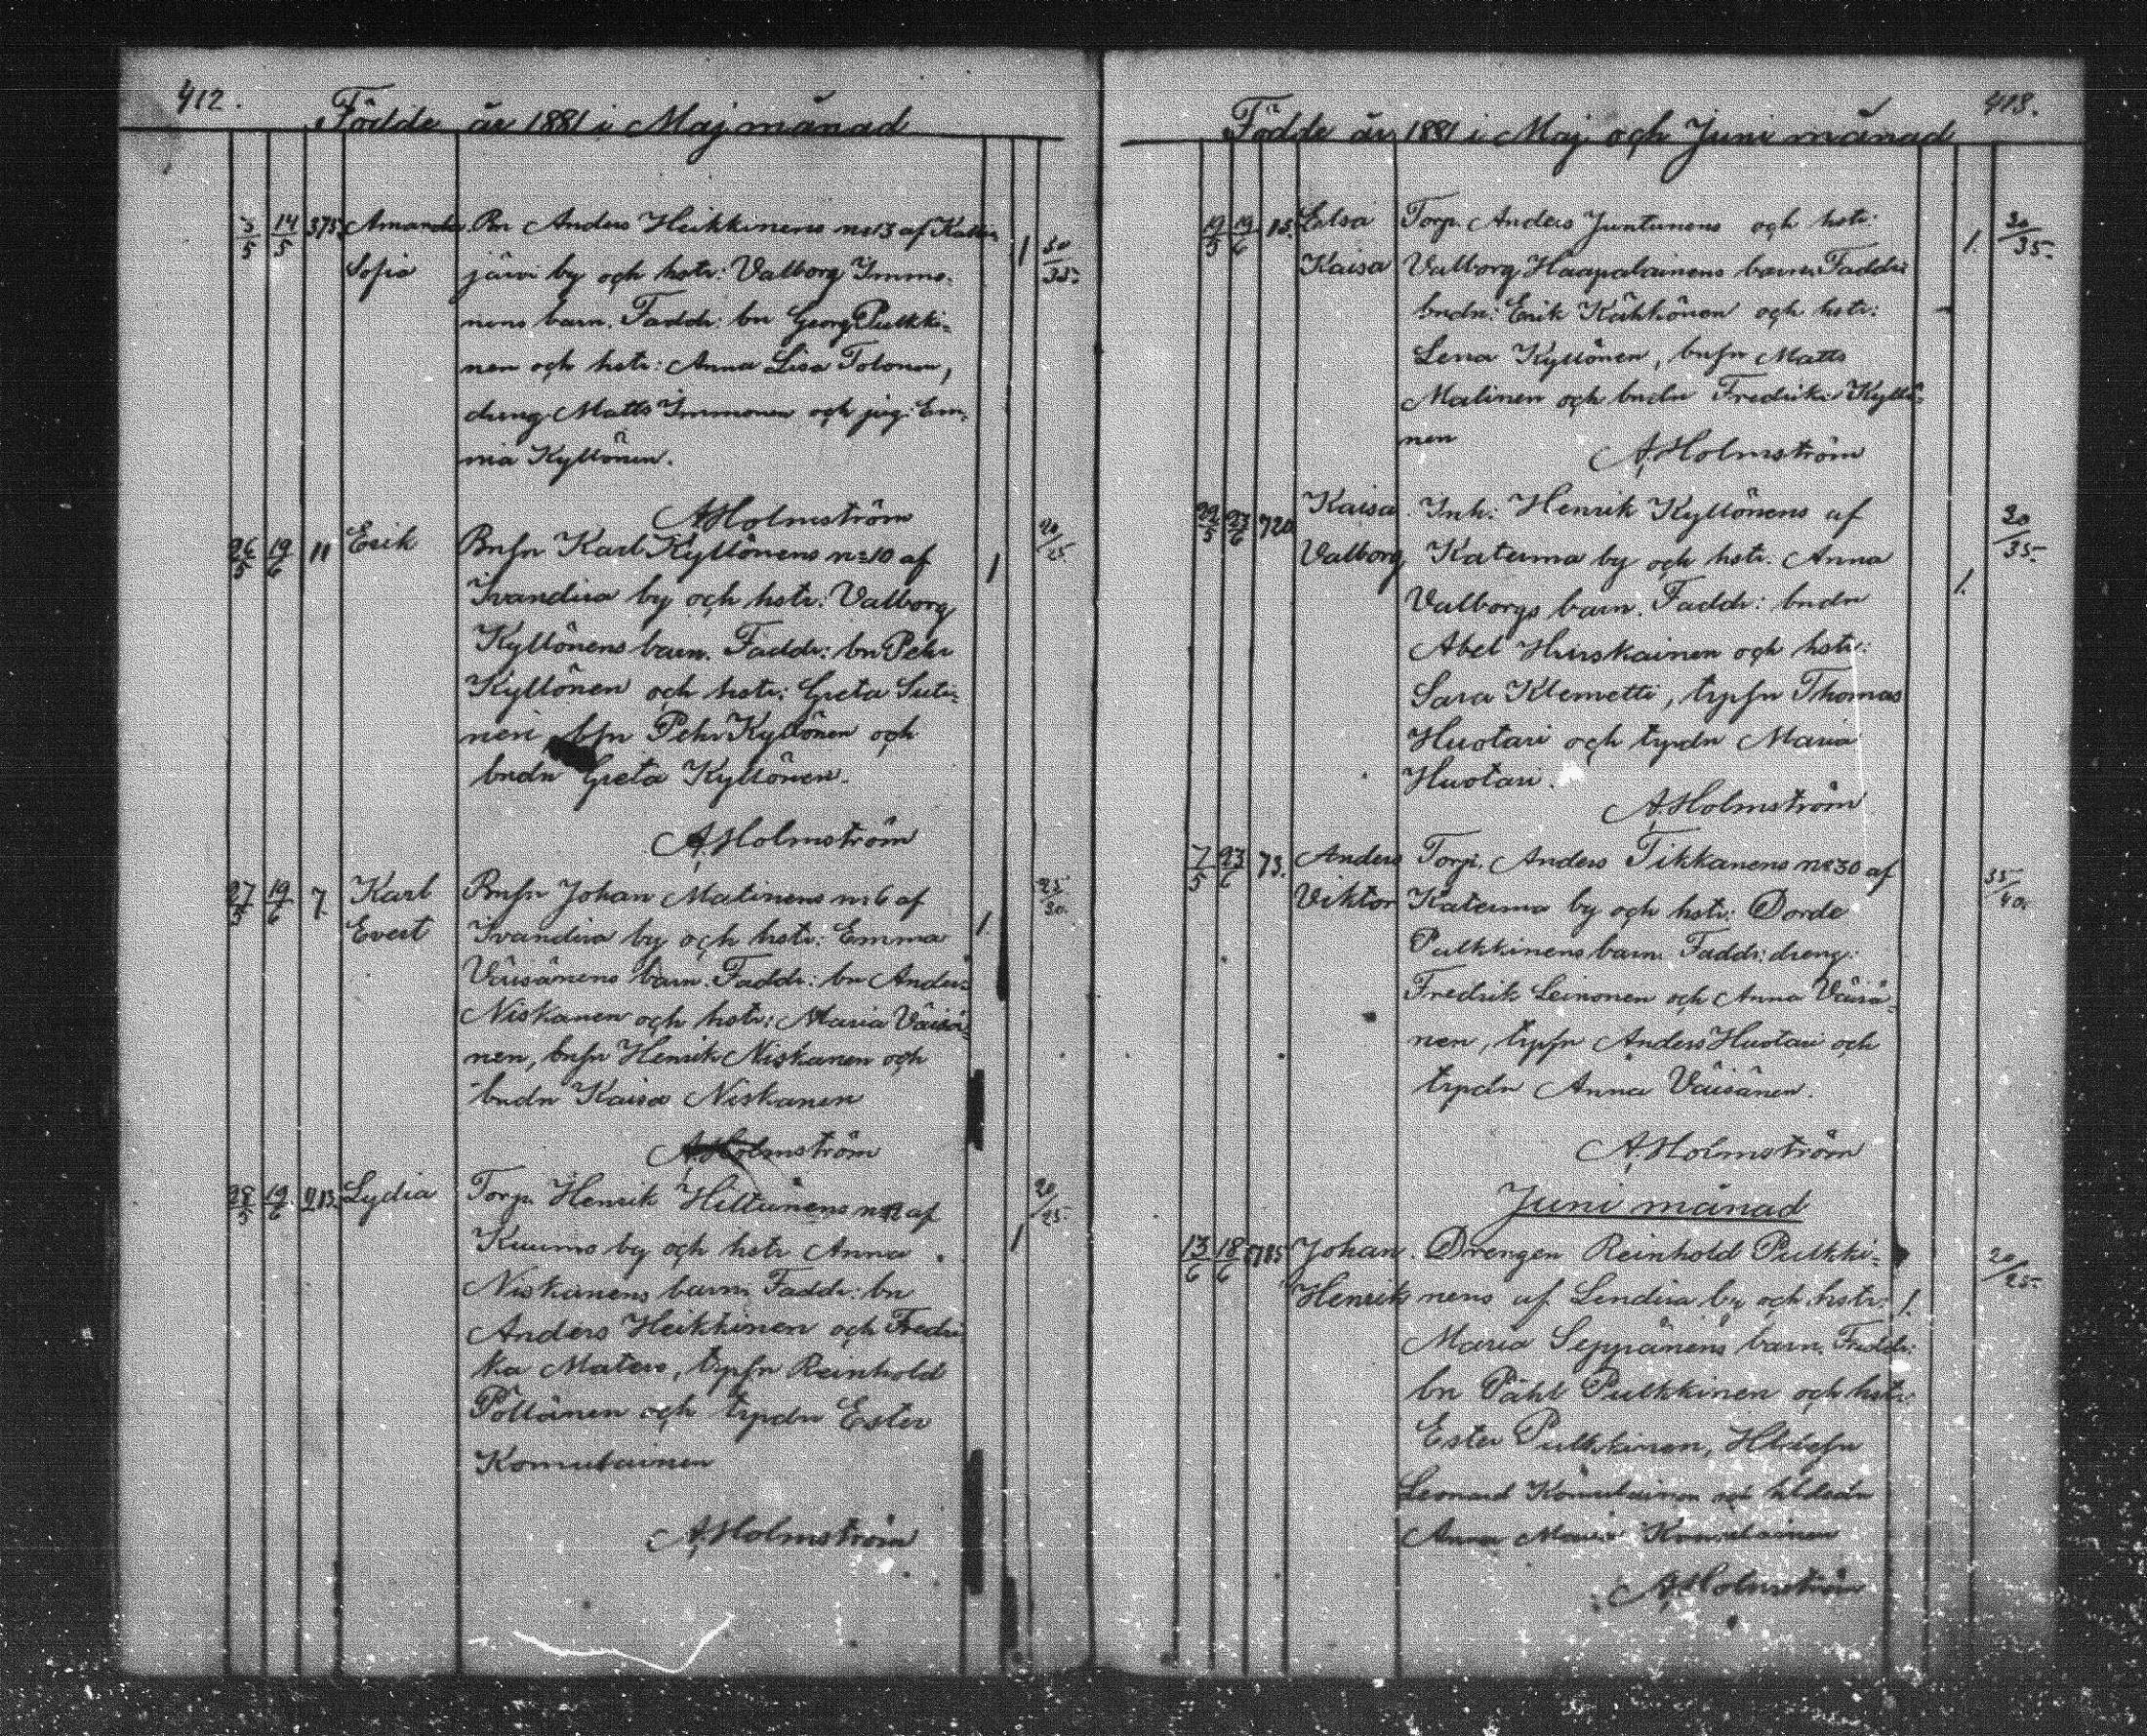 412.
Födde år 1881 i Maj månad
3/5 14/5 375. Amanda Bn Anders Heikkinens no 13 af
Sofia järvi by och hstr: Valborg Immo-
nens barn. Faddr: bn Georg Pulkki-
nen och hstr: Anna Lisa Tolonen,
dreng Matts Immonen och pig: Em-
ma Kyllönen.
1 30/35.
A. Holmström
26/5 19/6 11 Erik Bnsn Karl Kyllönens no 10 af
Ivandira by och hstr: Valborg
Kyllönens barn. Faddr: bn Pehr
Kyllönen och hstr: Greta Suti-
nen, bsn Pehr Kyllönen och
bndn Greta Kyllönen.
1 20/25.
A. Holmström
27/5 19/6 7. Karl Bnsn Johan Malinens no 6 af
Evert Ivandira by och hstr: Emma
Väisänens barn. Faddr: bn Anders
Niskanen och hstr: Maria Väisä-
nen, bnsn Henrik Niskanen och
bndn Kaisa Niskanen
1 25/30.
A. Holmström
28/5 19/6 213. Lydia Torp. Henrik Hiltunens no 12 af
Kuumo by och hstr Anna
Niskanens barn. Faddr: bn
Anders Heikkinen och Fredri
ka Matero, trpsn Reinhold
Pöllänen och trpdn Ester
Komulainen
1 20/25.
A. Holmström
413.
Födde år 1881 i Maj och Juni månad
19/5 19/6 15. Elsa Torp. Anders Juntunens och hstr:
Kaisa Valborg Haapalainens barn. Faddr:
bndn: Erik Kähkönen och hstr:
Lena Kyllönen, bnsn Matts
Malinen och bndn Fredrika Kyllö-
nen
1. 30/35.
A. Holmström
22/5 23/6 720 Kaisa Inh: Henrik Kyllönens af
Valborg Katerma by och hstr. Anna
Valborgs barn. Faddr: bndn
Abel Hurskainen och hstr:
Sara Klemetti, trpsn Thomas
Huotari och trpdn Maria
Huotari.
1. 30/35.
A. Holmström
7/5 23/6 73. Anders Torp. Anders Tikkanens no 30 af
Viktor Katerma by och hstr: Dorde
Pulkkinens barn. Faddr: dreng:
Fredrik Leinonen och Anna Väisä-
nen, trpsn Anders Huotari och
trpdn Anna Väisänen.
35/40.
A. Holmström
Juni månad
13/6 18/6 Johan Drengen Reinhold Pulkki-
Henrik nens af Lendira by och hstr:
Maria Seppänens barn. Faddr:
bn Påhl Pulkkinen och hstr:
Ester Pulkkinen,
Leonard Komulainen och
Anna Maria Komulainen
1. 20/25.
A. Holmström